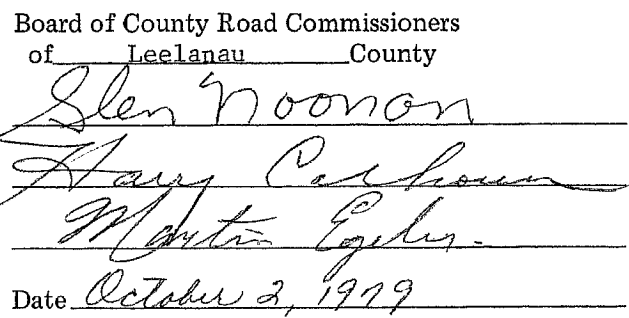 Board of County Road Commissioners
of Leelanau County
Glen Noonan
Harry Calhoun
Martin Egeler
Date October 2, 1979